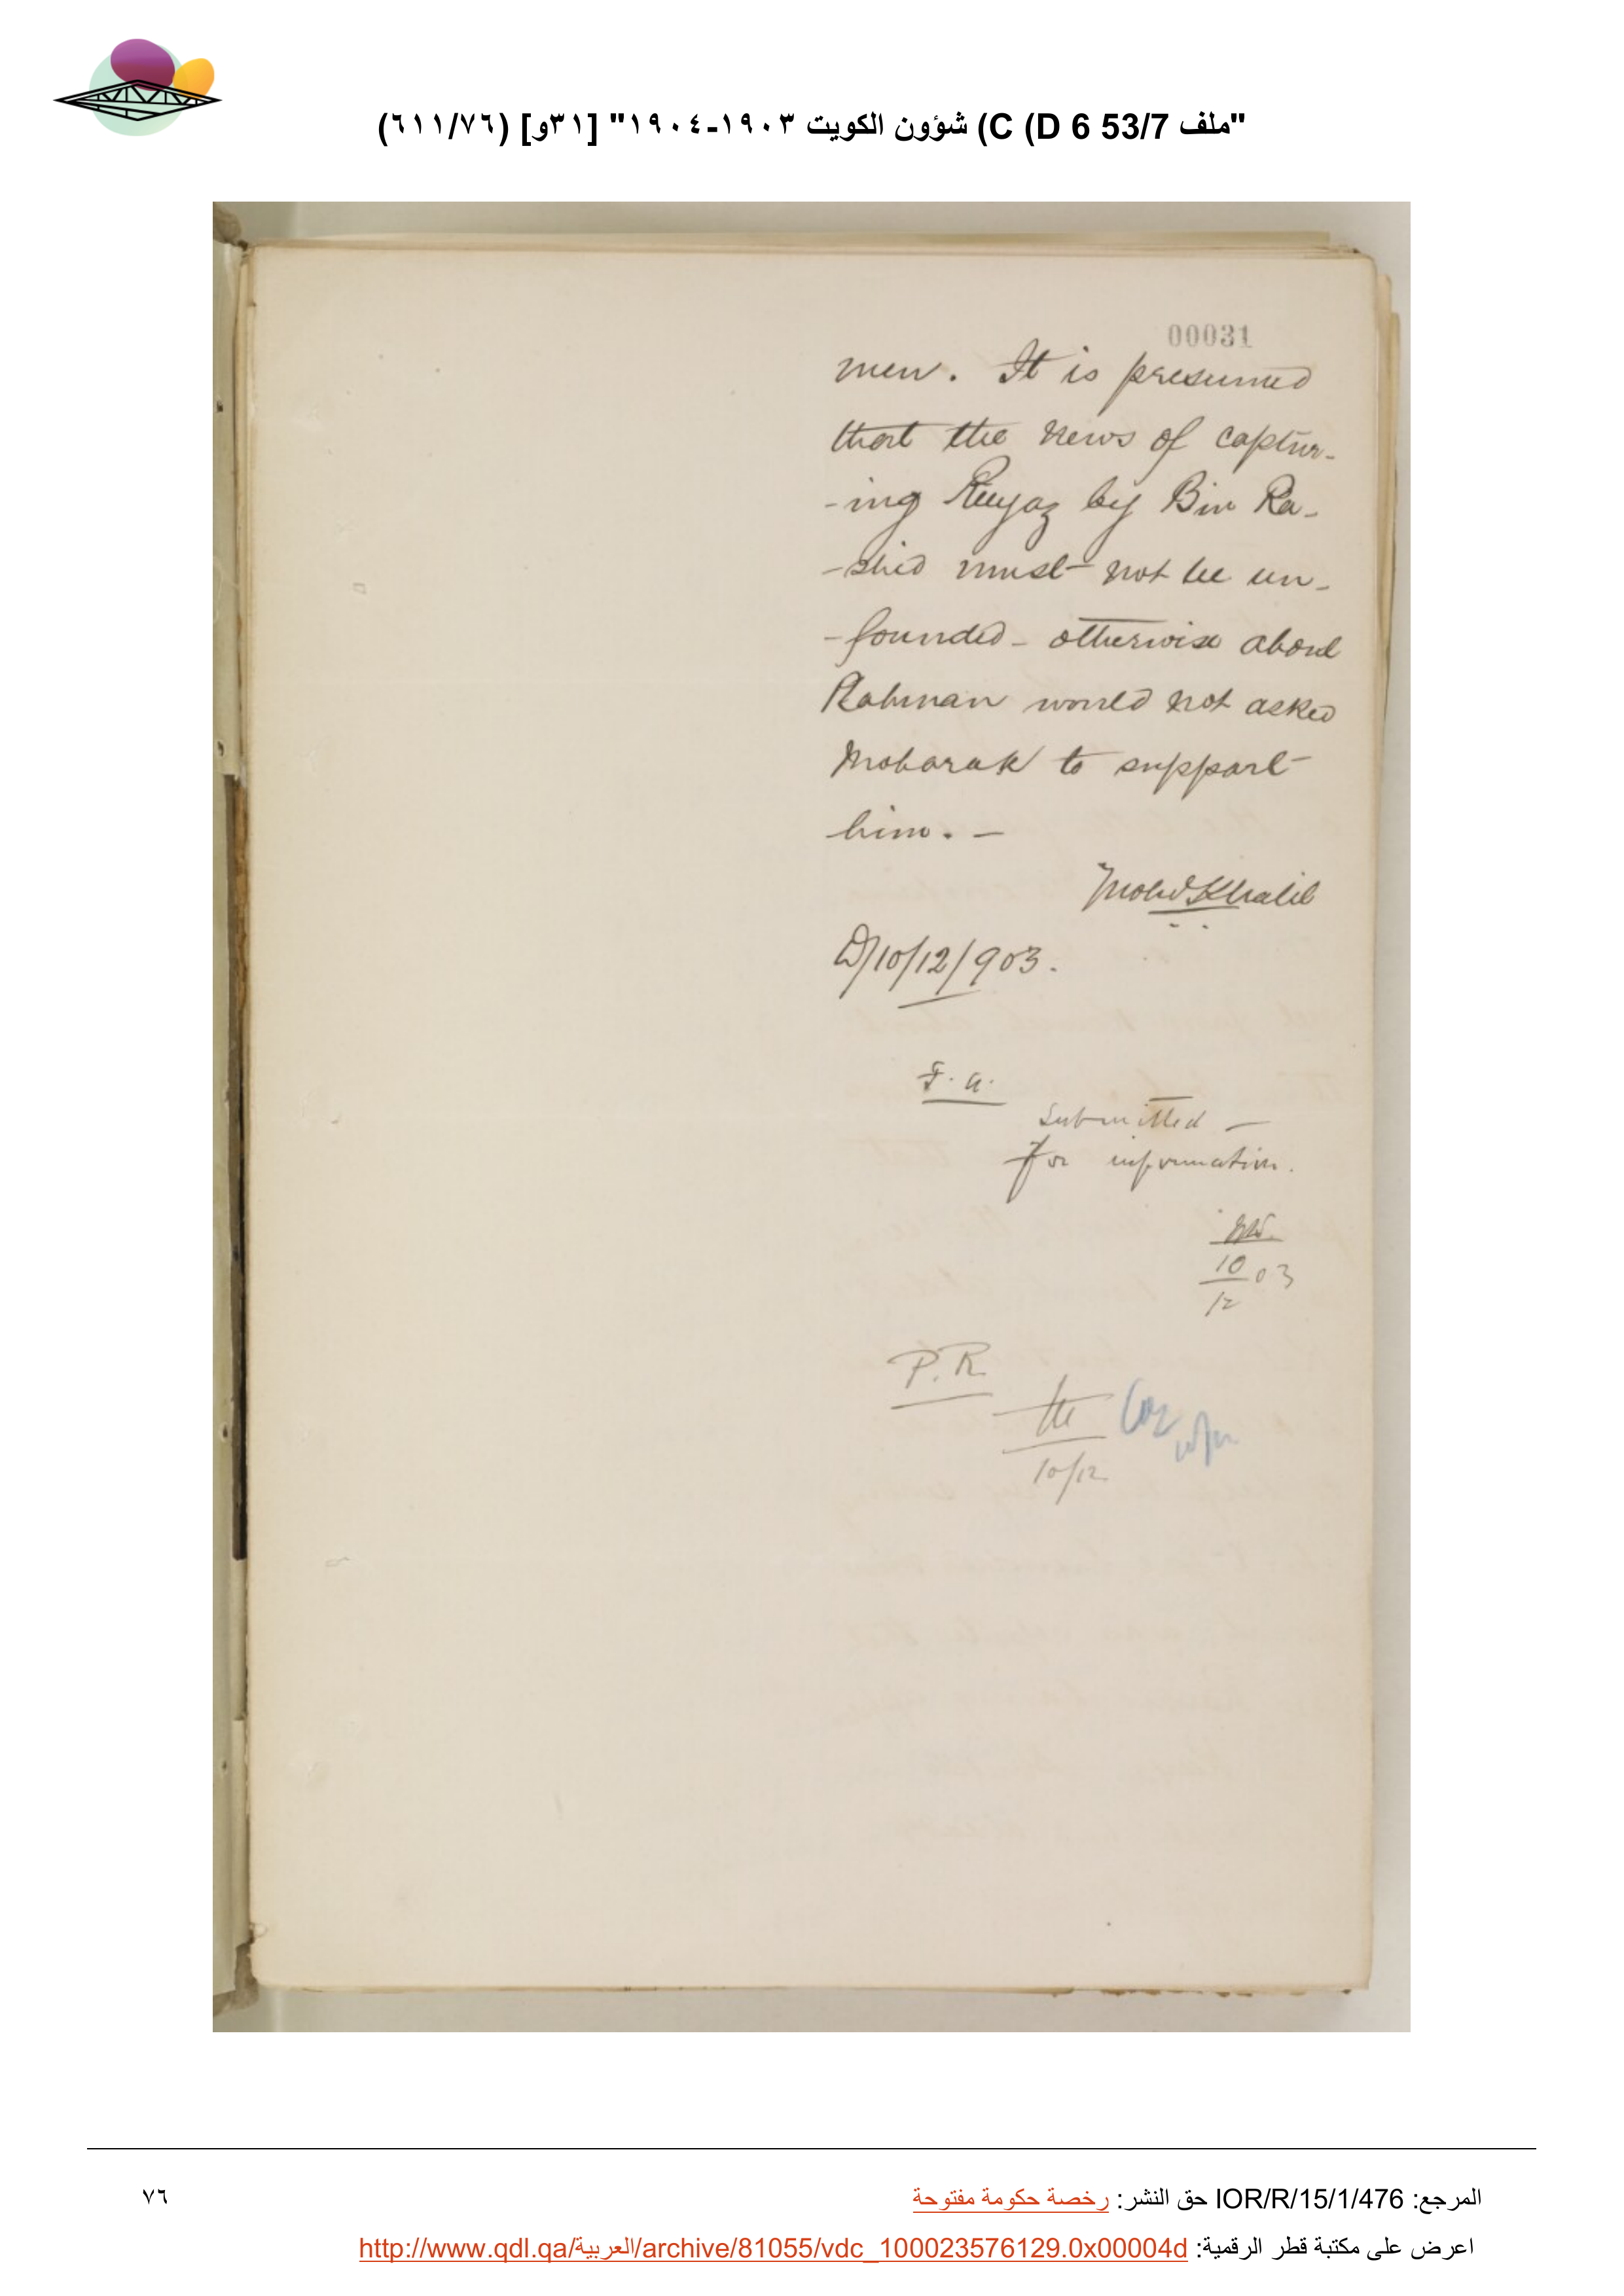 "ملف 53/7 C (D 6) شؤون الكويت ١٩٠٣-١٩٠٤" [٣١و] (٦١١/٧٦)
00031
men. It is presumed
that the news of captur-
-ing Reyaz by Bin Ra-
-shid must not be un-
-founded - otherwise abdul
Rahman would not asked
Mobarak to support
him. -
Mohd Khalil
D/10/12/903.
F. A.
Submitted -
for information.
10
03
12
P. R
10/12
المرجع: IOR/R/15/1/476 حق النشر: رخصة حكومة مفتوحة
٧٦
اعرض على مكتبة قطر الرقمية: http://www.qdl.qa/العربية/archive/81055/vdc_100023576129.0x00004d